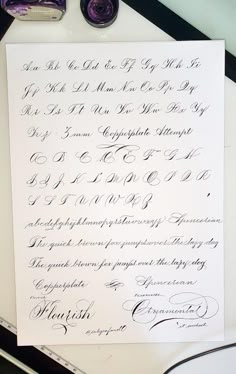 Aa Bb Cc Dd Ee Ff Gg Hh Ii Jj
Kk Ll Mm Nn Oo Pp Qq
Rr Ss Tt Uu Vv Ww Xx Yy
Zz 3mm Copperplate Attempt
A B C D E F G H
I J K L M N O P Q
R S T U V W X Y Z
abcdefghijklmnopqrstuvwxyz Spencerian
The quick brown fox jumps over the lazy dog
The quick brown fox jumps over the lazy dog
Copperplate Spencerian
Flourish Ornamental